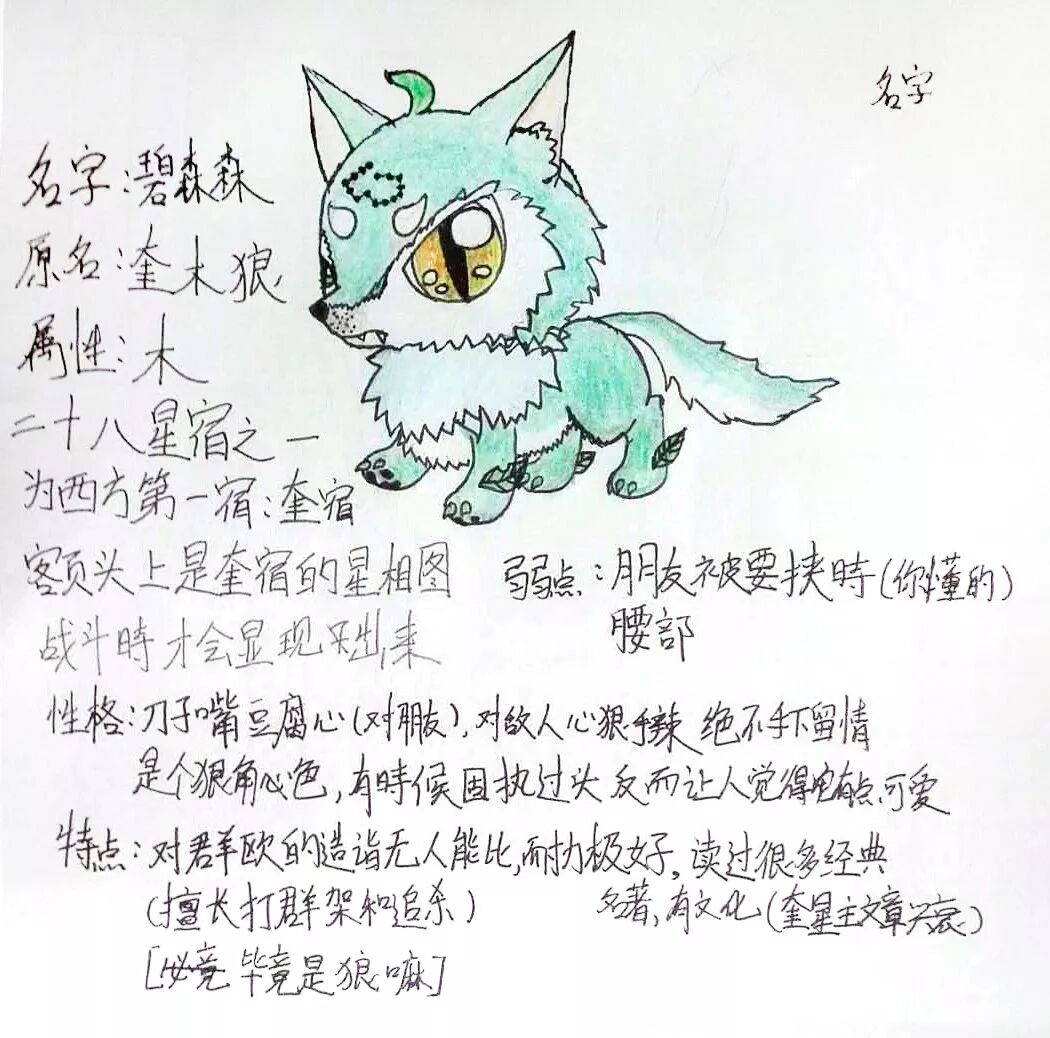 名字
名字:碧森森
原名:奎木狼
属性:木
二十八星宿之一
为西方第一宿:奎宿
客页头上是奎宿的星相图
战斗時才会显现出来
弱点:朋友被要挟時(你懂的)
腰部
性格:刀子嘴豆腐心(对朋友),对敌人心狠手辣 绝不手下留情
是个狠角色,有時候固执过头 反而让人觉得有点可爱
特点:对群欧的造诣无人能比,耐力极好,读过很多经典
(擅长打群架和追杀) 名著,有文化(奎星主文章兴衰)
[必竟 毕竟是狼嘛]